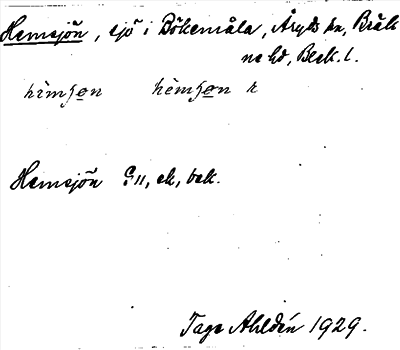 Hemsjön, sjö i Bökemåla, Åryds sn, Bräk
ne hd, Blek. l.
hèmʃo̲n hèmʃo̲n r
Hemsjön G11, ek, bek.
Tage Ahldén 1929.